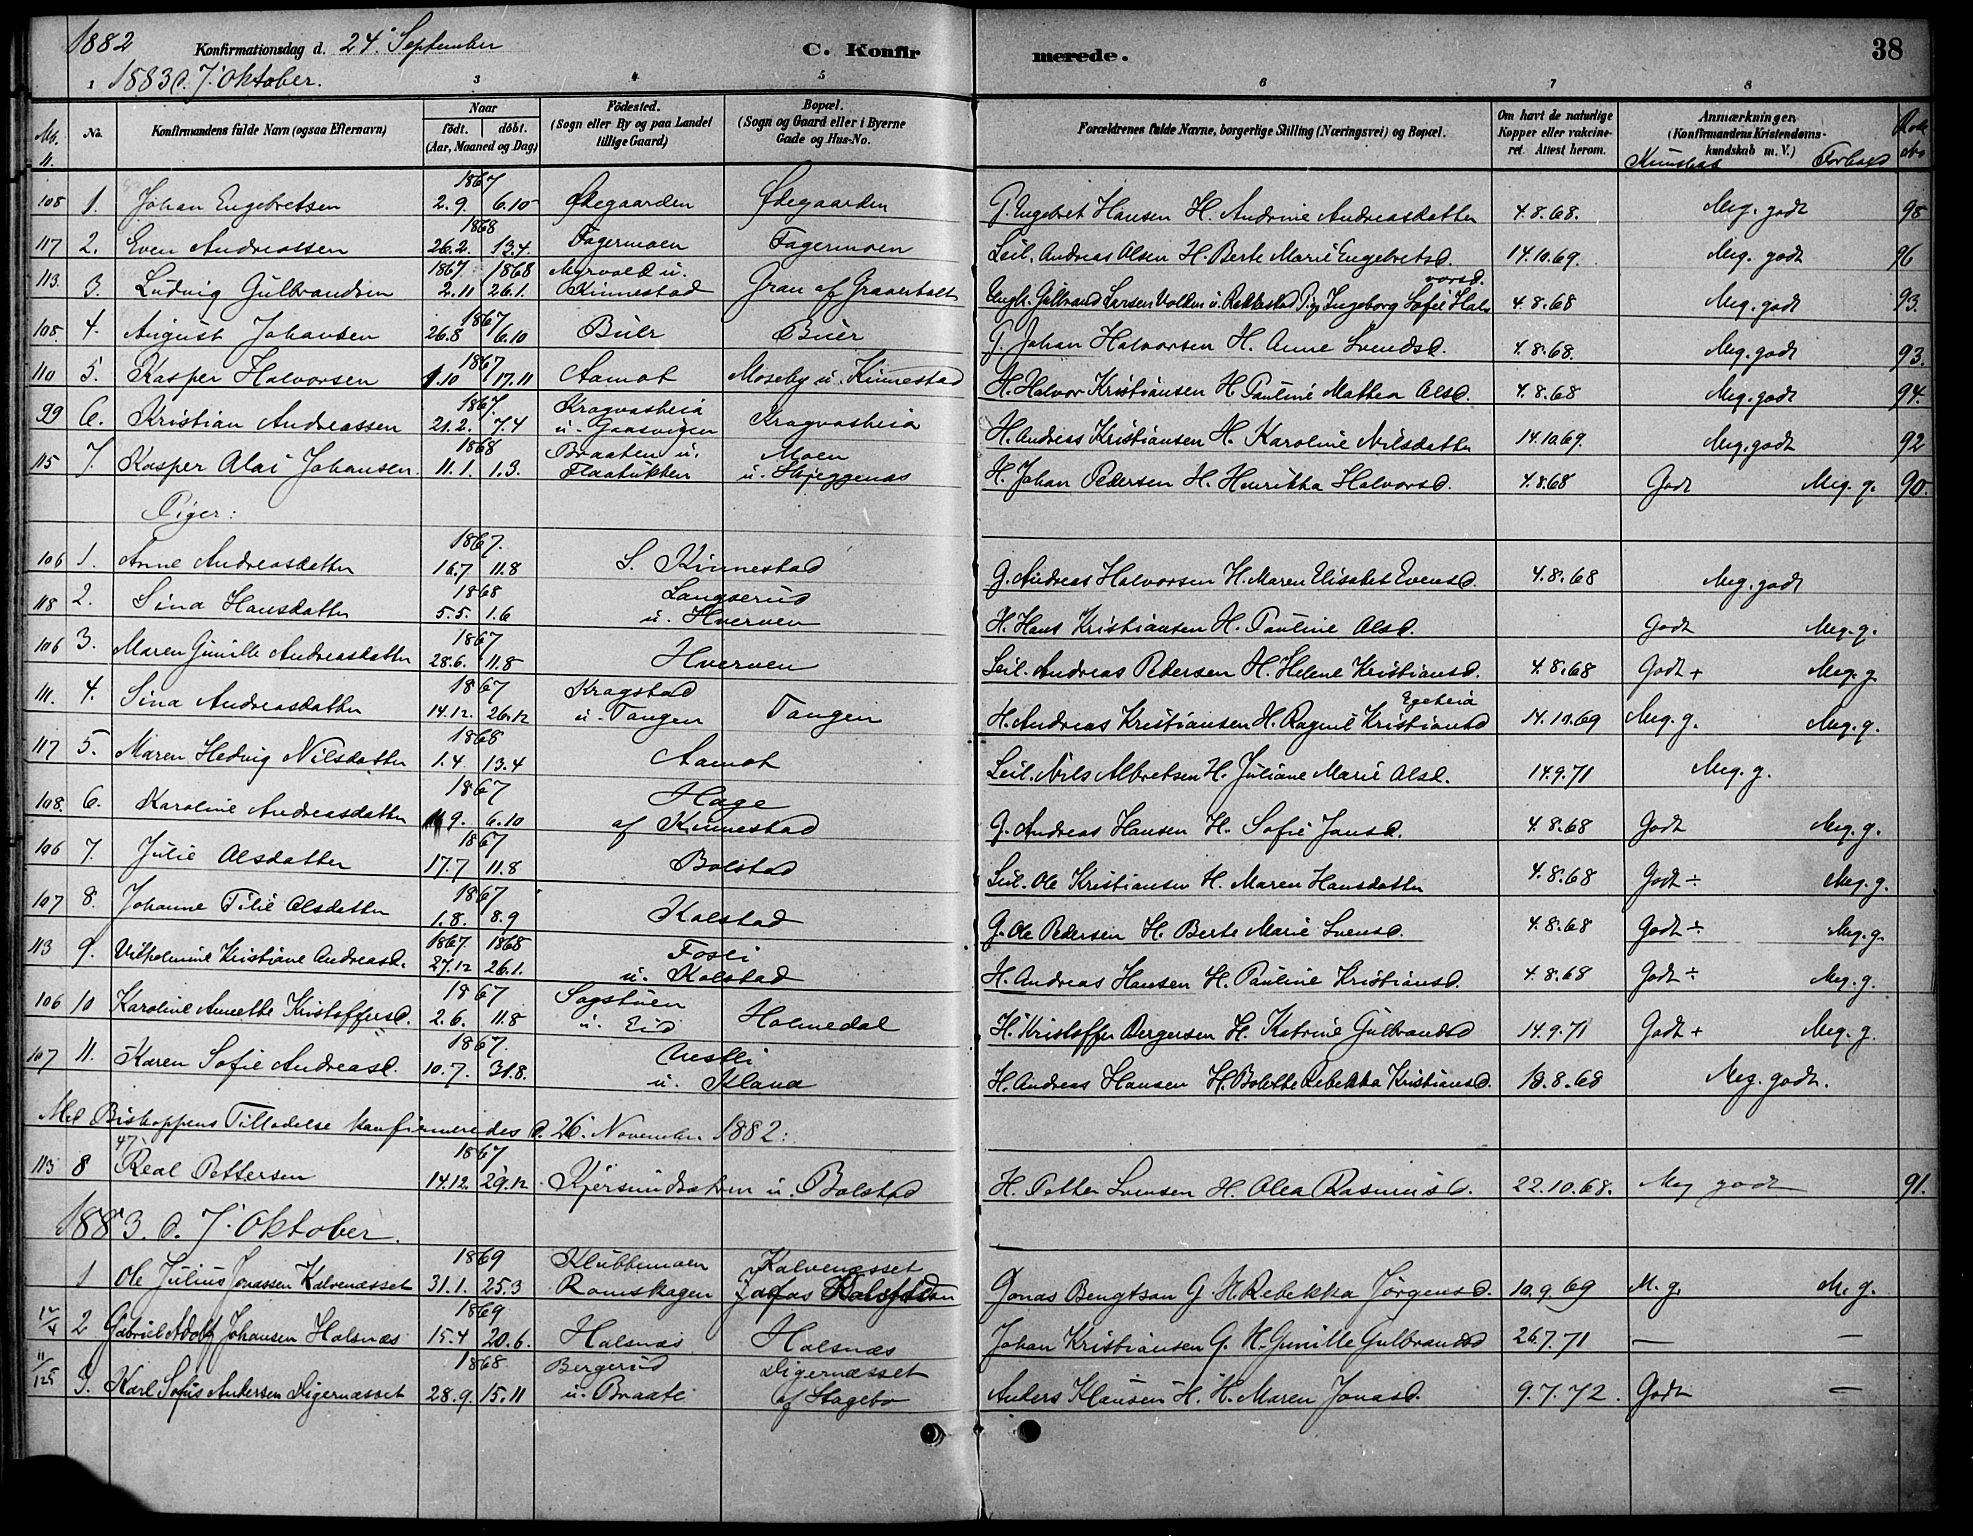 1882 Konfirmationsdag d. 24' September C. Konfirmerede. 38
1883 d. 7' Oktober.
1 3 4 5 6 7 8
No. Konfirmandens fulde Navn (ogsaa Efternavn) Naar födt. döbt. (Aar, Maaned og Dag) Födested. (Sogn eller By og paa Landet tillige Gaard) Bopæl. (Sogn og Gaard eller i Byerne Gade og Hus-No. Forældrenes fulde Navne, borgerlige Stilling (Næringsvei) og Bopæl. Om havt de naturlige Kopper eller vakcineret. Attest herom. Anmærkninger, (Konfirmandens Kristendomskundskab m. V.) Kundskab Forhold
1867
108 1. Johan Engebretsen 2.9. 6.10 Ødegaarden Ødegaarden G. Engebret Hansen H. Andrine Andreasdatter 4.8.68. Meg. godt 98
1868
117 2. Even Andreassen 26.2. 13.4. Fagermoen Fagermoen Leil. Andreas Olsen H. Berte Marie Engebretsd. 14.10.69. Meg. godt 96
1867 1868 Myrvold u.
113. 3. Ludvig Gulbrandsen 2.11 26.1. Kinnestad Gran af Ungk. Gulbrand Larsen u. Rakkestad Pig. Ingeborg Sofie Halvorsd. 4.8.68 Meg. godt 93.
1867
108. 4. August Johansen 26.8 6.10 Buer Buer G. Johan Halvorsen H. Anne Svendsd. 4.8.68. Meg. godt 93.
1867
110 5. Kasper Halvorsen 1.10 17.11 Aamot Moseby u. Kinnestad H. Halvor Kristiansen H. Pauline Mathea Olsd. 4.8.68 Meg. godt 94.
1867. Kragvasheia
99 6. Kristian Andreassen 21.2. 7.4 u. Gaasvigen Kragvasheia H. Andreas Kristiansen H. Karoline Nilsdatter 14.10.69. Meg. godt 92
1868 Braaten u. Moen
115 7. Kasper Olai Johansen. 11.1. 1.3. Flaatukken u. Skjeggenæs H. Johan Pedersen H. Henrikka Halvorsd. 4.8.68 Godt Meg. g. 90.
Piger:
1867.
106 1. Anne Andreasdatter 16.7 11.8 S. Kinnestad G. Andreas Halvorsen H. Maren Elisabet Evensd. 4.8.68 Meg. godt
1868 Langserud
118 2. Sina Hansdatter 5.5. 1.6 u. Hverven H. Hans Kristiansen H. Pauline Olsd. Godt Meg. g.
1867
106 3. Maren Gunille Andreasdatter 28.6. 11.8 Hverven Leil. Andreas Pedersen H. Helene Kristiansd. 4.8.68 Godt + Meg. g.
1867 Kragstad Egeheia
111. 4. Sina Andreasdatter 14.12. 26.12 u. Tangen Tangen H. Andreas Kristiansen H. Ragnil Kristiansd 14.10.69 Meg. g. Meg. g.
1868
117 5. Maren Hedvig Nilsdatter 1.4 13.4 Aamot Leil. Nils Albretsen H. Juliane Marie Olsd. 14.9.71 Meg. g.
1867 Hage
108. 6. Karoline Andreasdatter 9. 6.10 af Kinnestad G. Andreas Hansen H. Sofie Jansd. 4.8.68 Godt Meg. g.
1867
106 7. Julie Olsdatter 17.7 11.8 Bolstad Leil. Ole Kristiansen H. Maren Hansdatter 4.8.68 Godt ÷ Meg. g.
1867
107 8. Johanne Tilie Olsdatter 1.8. 8.9 Kolstad G. Ole Pedersen H. Berte Marie Svensd. 4.8.68 Godt ÷ Meg. g.
1867 1868 Fosli
113 9. Vilhelmine Kristiane Andreasd. 27.12 26.1. u. Kolstad H. Andreas Hansen H. Pauline Kristiansd. 4.8.68 Godt ÷ Meg. g.
1867 Sagstuen
106 10 Karoline Annette Kristoffersd. 2.6. 11.8 u. Eid Holmedal H. Kristoffer Bergersen H. Katrine Gulbrandsd 14.9.71 Godt + Meg. g.
1867.
107 11. Karen Sofie Andreasd. 10.7. 31.8. u. H. Andreas Hansen H. Bolette Rebekka Kristiansd. 18.8.68 Meg. godt.
Med Bishoppens Tilladelse konfirmeredes d. 26' November 1882:
47 1867
113 8 Real Pettersen 14.12. 29.12 u. Bolstad H. Petter Svensen H. Olea Rasmusd. 22.10.68. Meg godt 91.
1883. d. 7' Oktober.
1869 Klubbemoen Kalvenæsset
1 Ole Julius Jonassen Kalvenæsset 31.1. 25.3 Romskogen Jonas Bengtsan G. H. Rebekka Jørgensd. 10.9.69 M. g. M. g.
1869
12/4 2 Gabriel Adolf Johansen Holsnæs 15.4 20.6. Holsnæs Holsnæs Johan Kristiansen G. H. Gunille Gulbrandsd 26.7.71 — —
1868 Bergerud Digernæsset
11/125 3. Karl Sofus Andersen Digernæsset 28.9. 15.11 u. Braate af Stagebo Anders Klausen H. H. Maren Jonasd. 9.7.72. Godt —